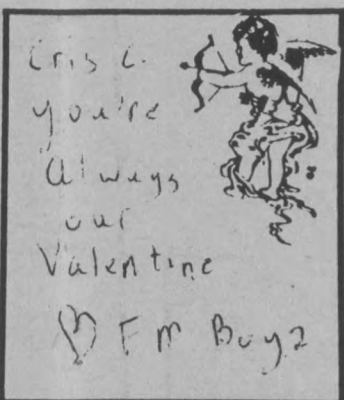 Cris C.
you're
always
our
Valentine
♡ FM Boyz